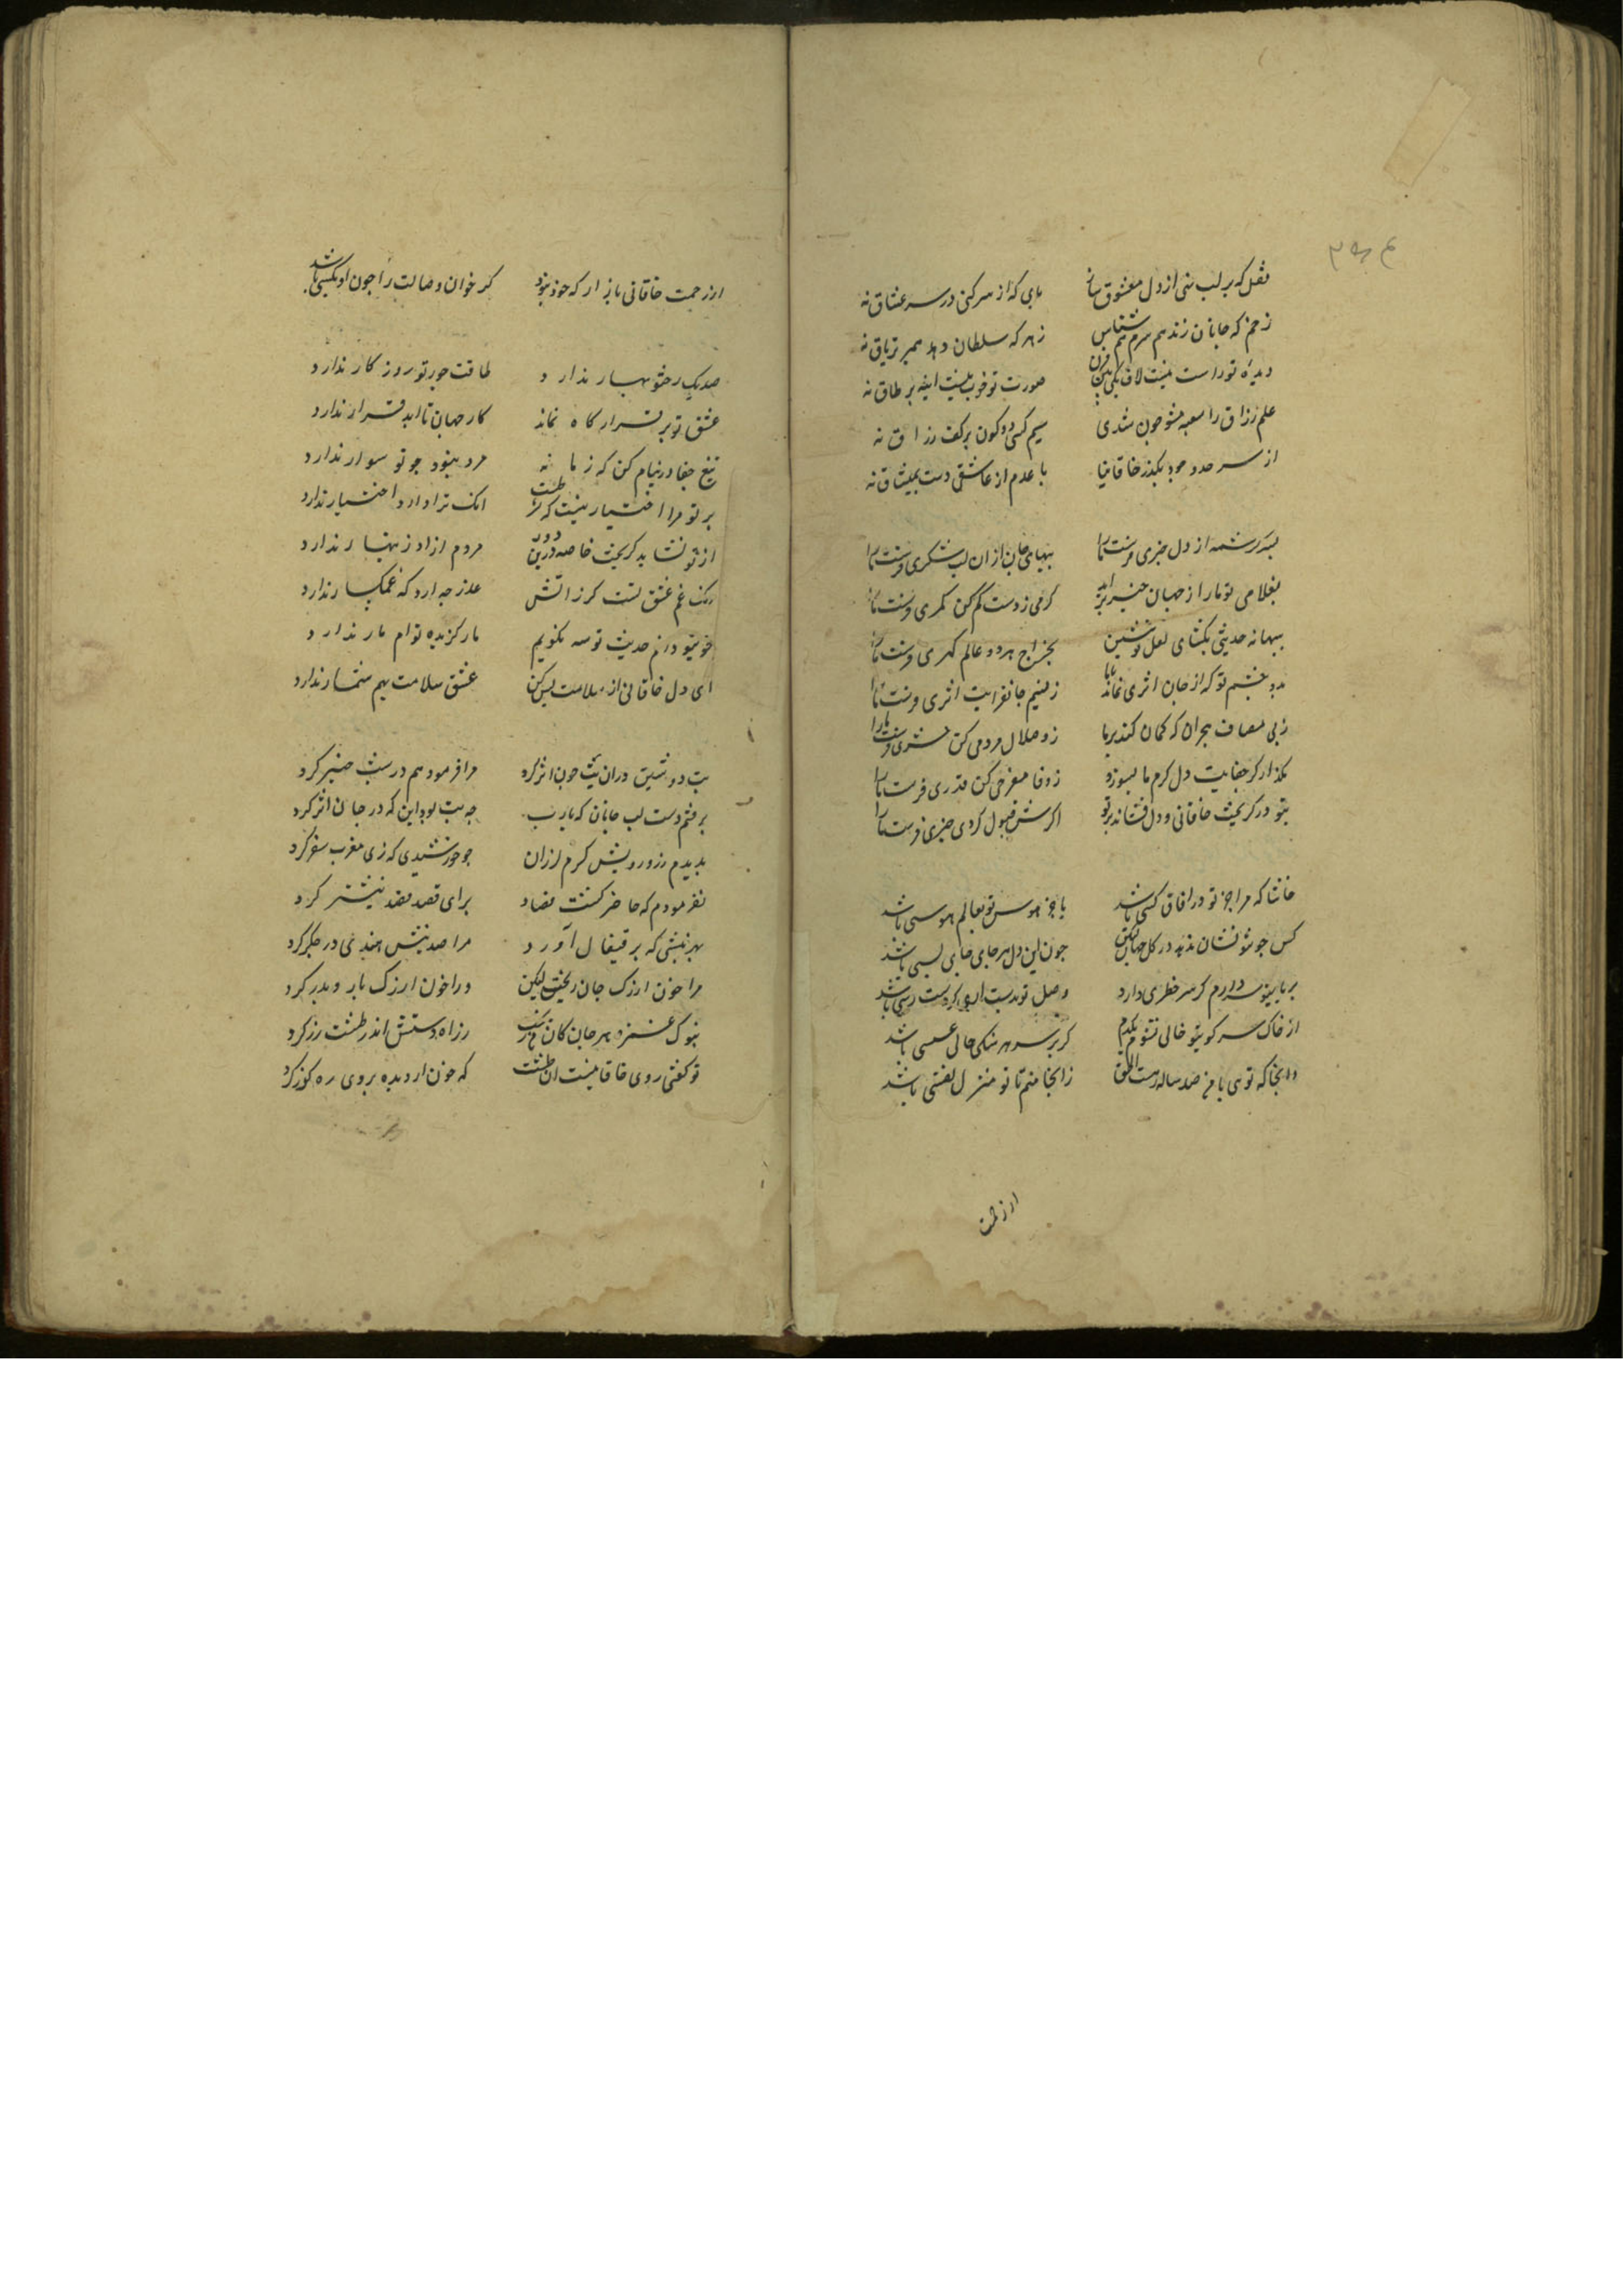 ۳۵۴
نقل که بر لب نهی از دل معشوق ساز بای که از سر کنی در سر عشاق نه
زخم که جانان زند هم سرم هم شناس زهر که سلطان دهد همبر تریاق نه
دیده تو راست نیست لاف یکی بین مزن صورت تو خوب نیست اینه بر طاق نه
علم رزاق را سعبه مشو چون شدی سیم کسی دو کون بر کف رزاق نه
از سر حد وجود بکذر خاقانیا با عدم از عاشقی دست بمیثاق نه
بسر کرشمه از دل خبری فرست ما را ببهای جان از ان لب شکری فرست ما را
بغلامی تو ما را از جهان خبر برامد کرمی ز دست کم کن کمری فرست ما را
ببهانه حدیثی بکشای لعل نوشین بخراج هر دو عالم کهری فرست ما را
بدو چشم تو که از جان اثری نماند با ما ز نسیم جانفزایت اثری فرست ما را
ز پی مصاف هجران که کمان کشید بر ما ز وصال مردمی کن سپری فرست ما را
بکذار کر جفایت دل کرم ما بسوزد ز وفا مفرحی کن قدری فرست ما را
بتو در کریخت خاقانی و دل فشاند بر تو اکرش قبول کردی خبری فرست ما را
حاشا که مرا جز تو در افاق کسی باشد یا جز هوس تو بعالم هوسی باشد
کس چون تو نشان ندید در کل جهان لیکن چون این دل هر جای جای بسی باشد
بر پای تو سر دارم کر سر خطری دارد وصل تو بدست ارم کر دست رسی باشد
از خاک سر کویتو خالی نشوم یکدم کر بر سر هر سنکی حالی عسسی باشد
و انجا که توی با من صد ساله رهست الحق ز انجا منم تا تو منزل نفسی باشد
ار زحمت
ار زحمت خاقانی باز ار که خود نبود کر خوان وصالت را چون او مکسی باشد
صد یک حسن تو بهار ندارد طاقت جور تو روزکار ندارد
عشق تو بر قرار کاه نماند کار جهان تا ابد قرار ندارد
تیغ جفا در نیام کن که زمانه مرد نبود چو تو سوار ندارد
بر تو مرا اختیار نیست که شرطست انک ترا دارد اختیار ندارد
از تو نشاید کریخت خاصه درین دور مردم ازاد زینهار ندارد
رنک غم عشق تست کر ز اتش عذر چه ارد که غمکسار ندارد
خوبیتو دانم حدیث تو سه نکویم مار کزیده توام مار ندارد
ای دل خاقانی از سلامت بس کن عشق سلامت بهم شمار ندارد
تب دوشین در ان بت چون اثر کرد مرا فرمود هم در شب خبر کرد
برفتم دست لب جانان که یارب چه تب بود این که در جانان اثر کرد
بدیدم زرد رویش کرم لرزان چو خورشیدی که زی مغرب سفر کرد
نفرمودم که حاضر کشت فصاد برای قصد فصد نیشتر کرد
بهر نیشی که بر قیفال آورد مرا صد نیش هندی در جکر کرد
مرا خون از رک جان ریخت لیکن ورا خون از رک بازو بدر کرد
بنوک غمزه هر جان کان من ز راه دستش اندر طشت زر کرد
تو کفتی روی خاقانیست ان طشت که خون از دیده بروی ره کذر کرد